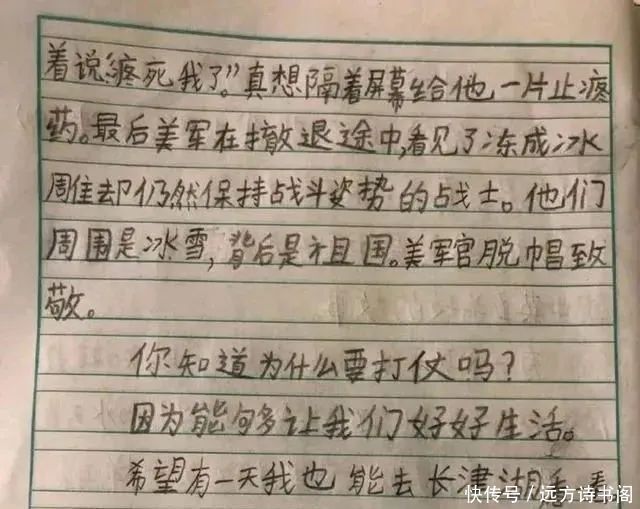 着说“疼死我了”。真想隔着屏幕给他一片止疼
药。最后美军在撤退途中,看见了冻成冰
雕却仍然保持战斗姿势的战士。他们
周围是冰雪,背后是祖国。美军官脱帽致
敬。
你知道为什么要打仗吗?
因为能够多让我们好好生活。
希望有一天我也能去长津湖看看
快传号/远方诗书阁